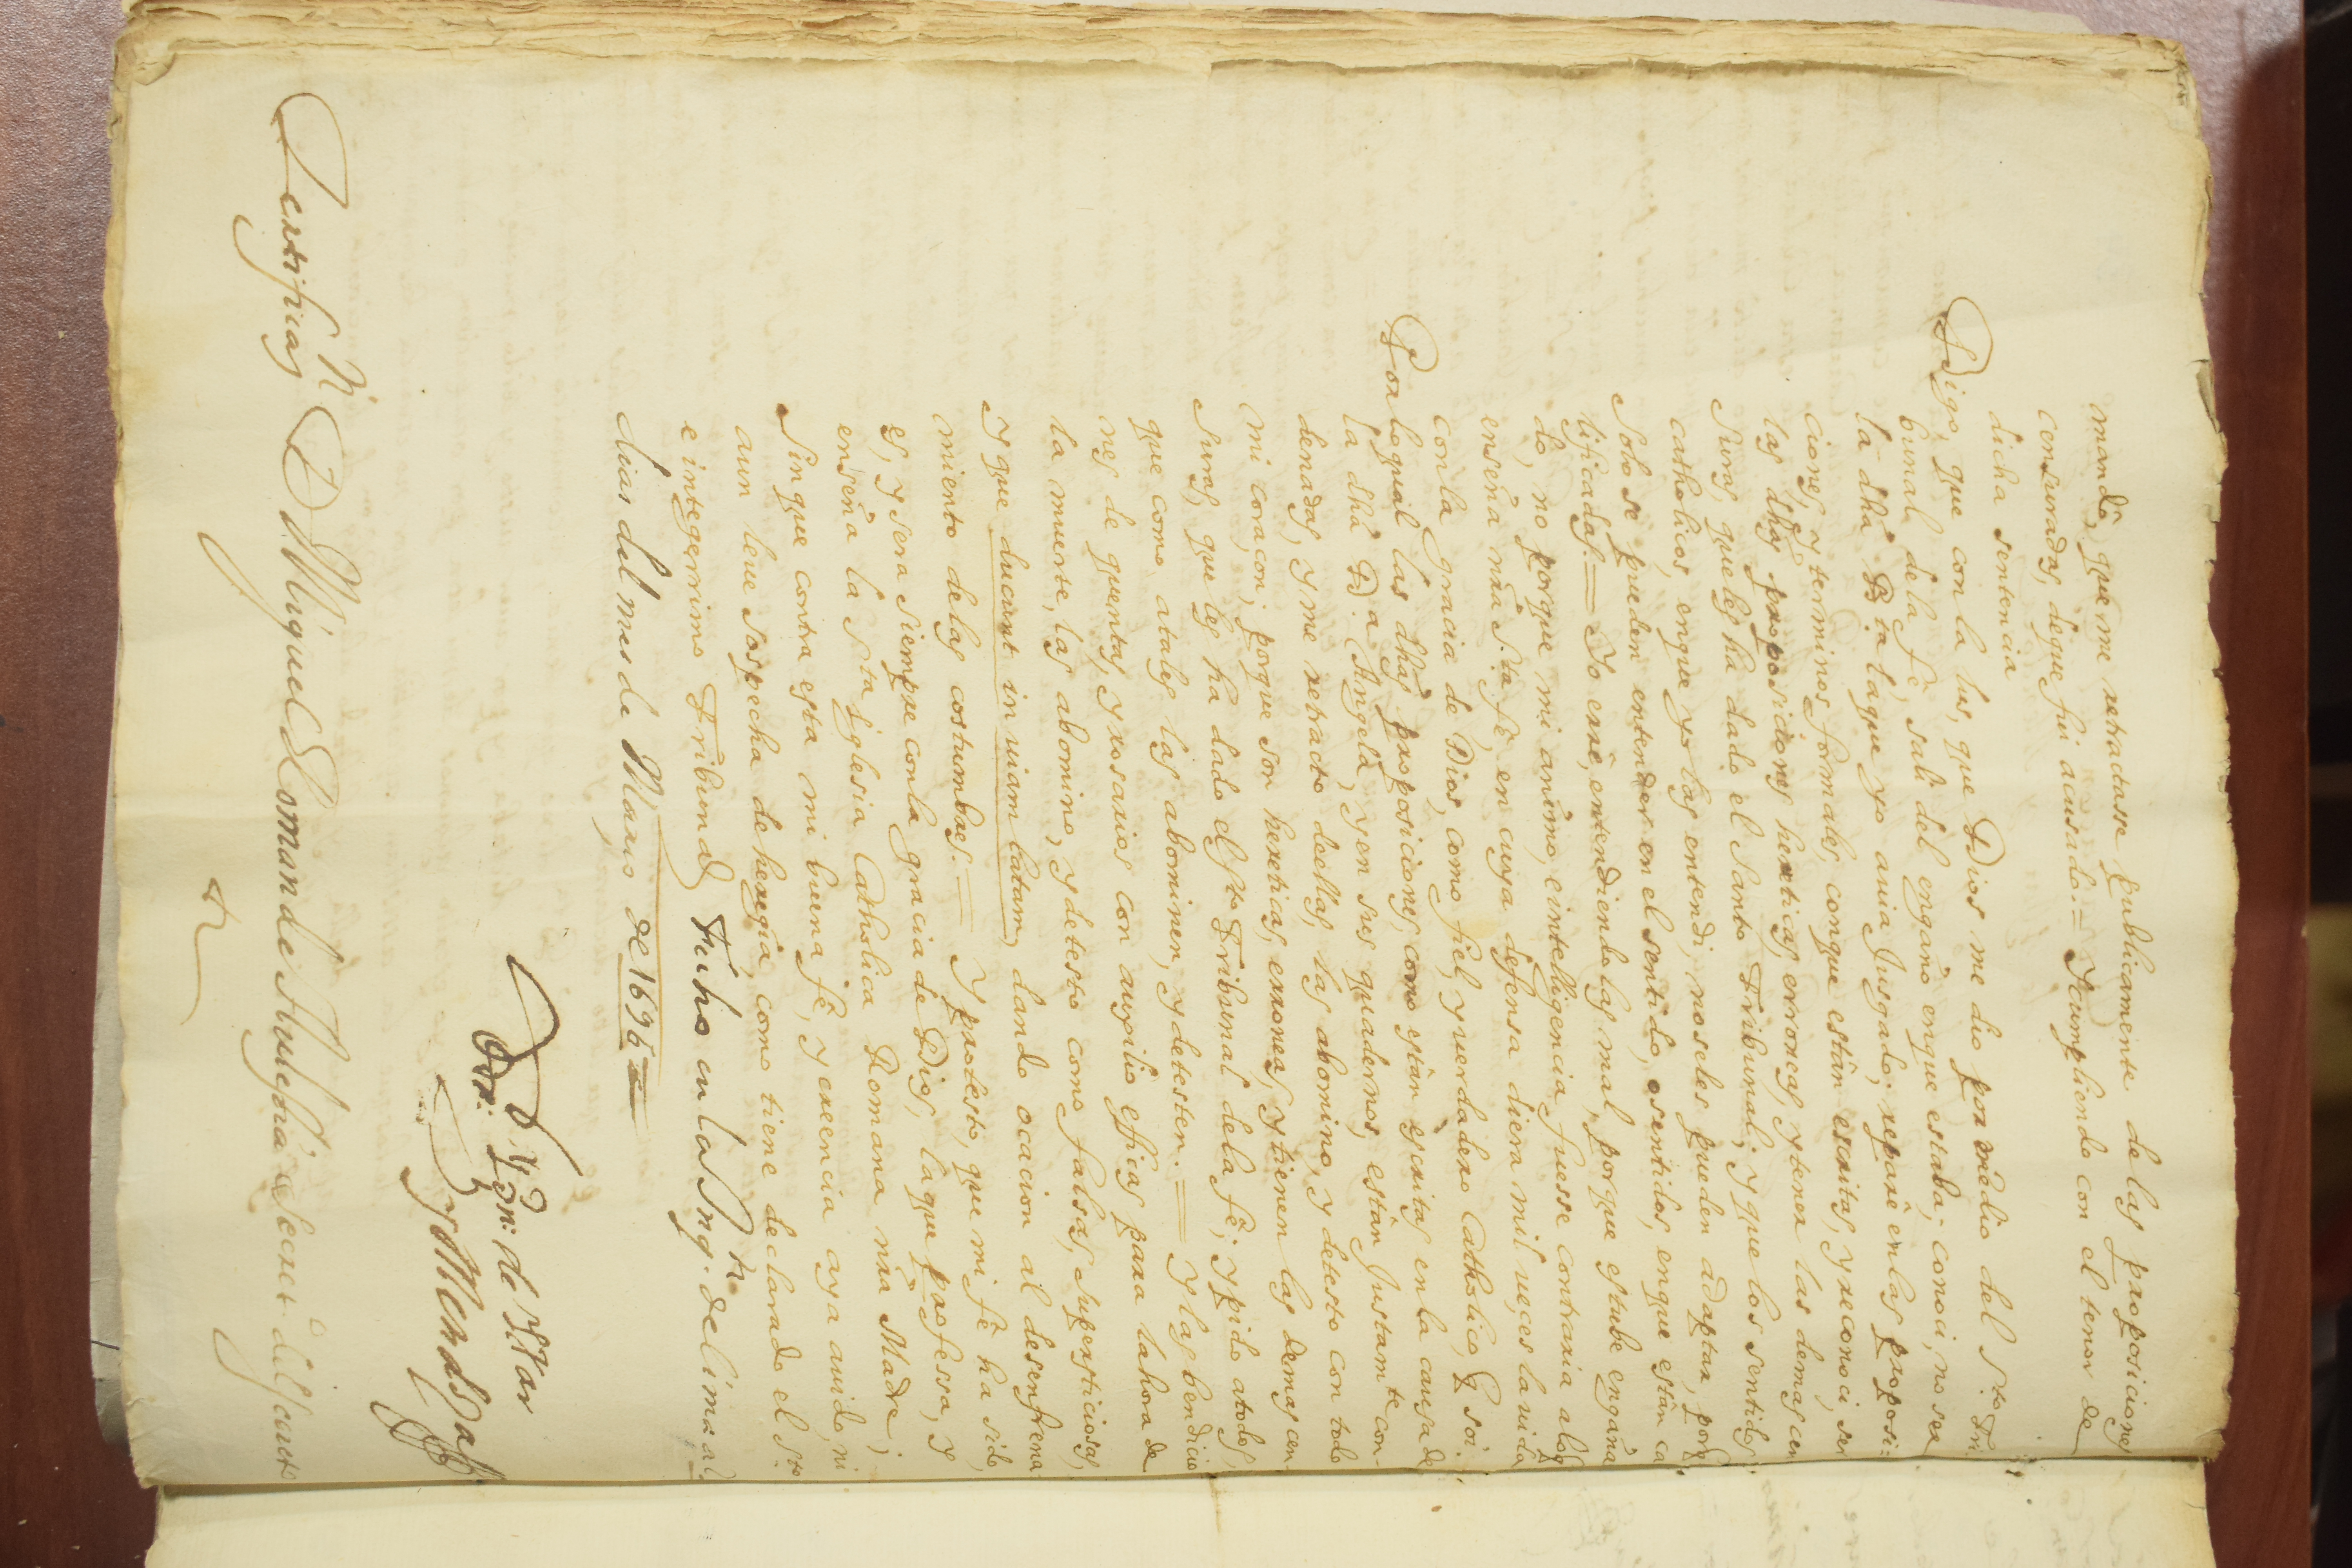 mandô, que me retractasse publicamente de las proposiciones
censuradas, deque fui acusado.= Y cumpliendo con el tenor de
dicha sentencia
Digo, que con la lus, que Dios me dio por mêdio del S.to Tri
bunal dela fê, sali del engaño enque estaba; conoci, no ser
la dha B.ta laque yo auia Jusgado; reparê enlas proposi:
ciones, y terminos formales, conque estân escritas, y reconoci, ser
las dhas proposiciones hereticas, erroneas, y tener las demas cen
suras, queles ha dado el Santo Tribunal; y que los sentidos
catholicos, enque yo las entendi, noseles pueden adaptar, porq
solo se pueden entender en el sentido, osentidos, enque estân ca
lificadas.= Yo errê, entendiendolas mal, porque estube engaña
do, no porque mi animo, e intelligencia fuesse contraria alo q
enseña nrâ S.ta fê, en cuya defensa diera mil ueçes la uida
conla gracia de Dios, como fiel, y uerdadero Catholico, q soi.
Por lo qual las dhas proposiciones, como estân escritas en la causa de
la dha D.a Angela, y en sus quadernos, estân Justam.te con-
denadas, y me retracto deellas, las abomino, y detesto con todo
mi coraçon; porque son hereticas, erroneas, y tienen las demas cen
suras, que les ha dado el S.to Tribunal dela fê; y pido atodos,
que como atales las abominen, y detesten.= Y las bendicio
nes de quentas, y rosarios con auxilio efficas para la hora de
la muerte, las abomino, y detesto como falsas, supersticiosas,
y que ducunt in uiam latam, dando ocacion al desenfrena
miento delas costumbres.= Y protesto, que mi fê ha sido,
es, y sera siempre conla gracia de Dios, laque professa, y
enseña la S.ta Iglesia Catholica Romana nrâ Madre;
sin que contra esta mi buena fê, y creencia aya auido, ni
aun leue sospecha de heregia, como tiene declarado el S.to
e integerrimo Tribunal, Fecho en la Inq.n de Lima a
dias del mes de Março de 1696=
D.or Ygn: de Yxar
y Mendoza
Certifico Yo D. Miguel Roman de Aulestia Secret.o dels.cauto